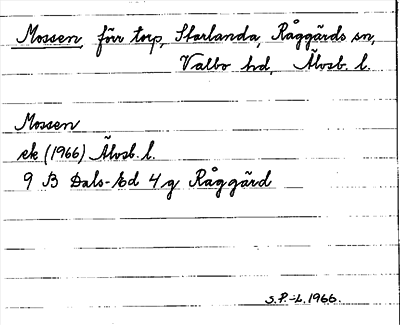 Mossen, förr torp, Starlanda, Råggärds sn,
Valbo hd, Älvsb. l.
Mossen
ek (1966) Älvsb. l.
9 B Dals-Ed 4 g Råggärd
S.P.-L. 1966.